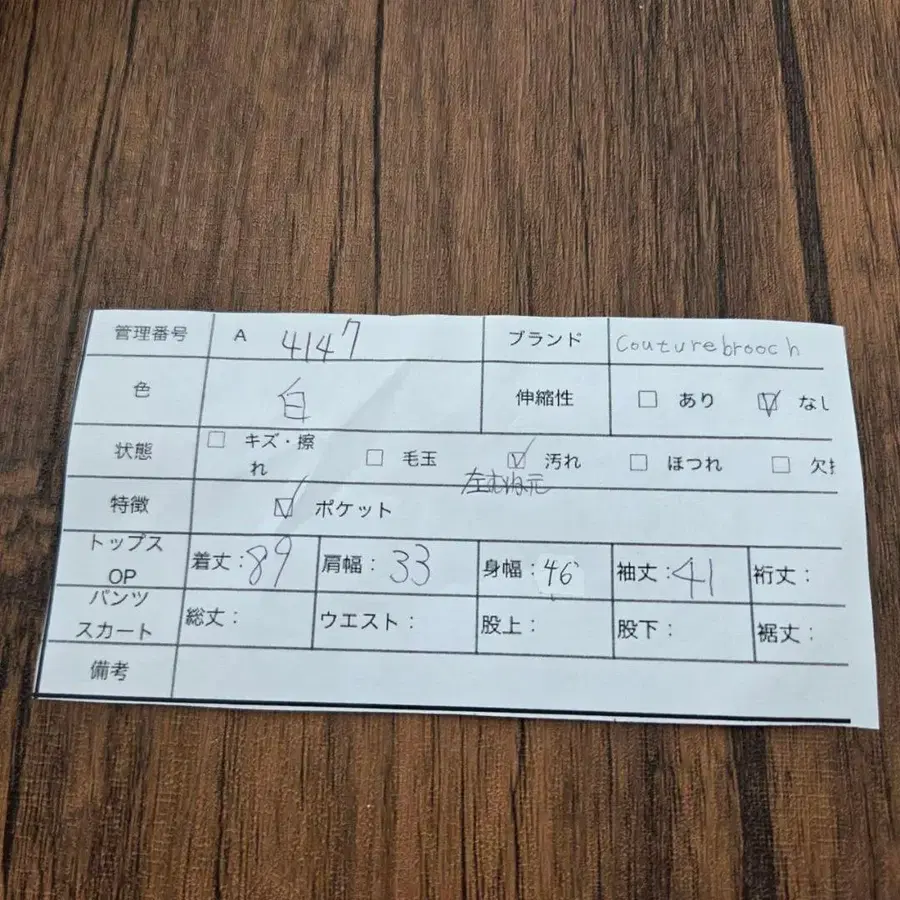 管理番号 A 4147 ブランド Couturebrooch
色 白 伸縮性 □ あり ☑ なし
状態 □ キズ・擦れ □ 毛玉 ☑ 汚れ □ ほつれ □ 欠
左むね元
特徴 ☑ ポケット
トップス OP 着丈：89 肩幅：33 身幅：46 袖丈：41 裄丈：
パンツ スカート 総丈： ウエスト： 股上： 股下： 裾丈：
備考